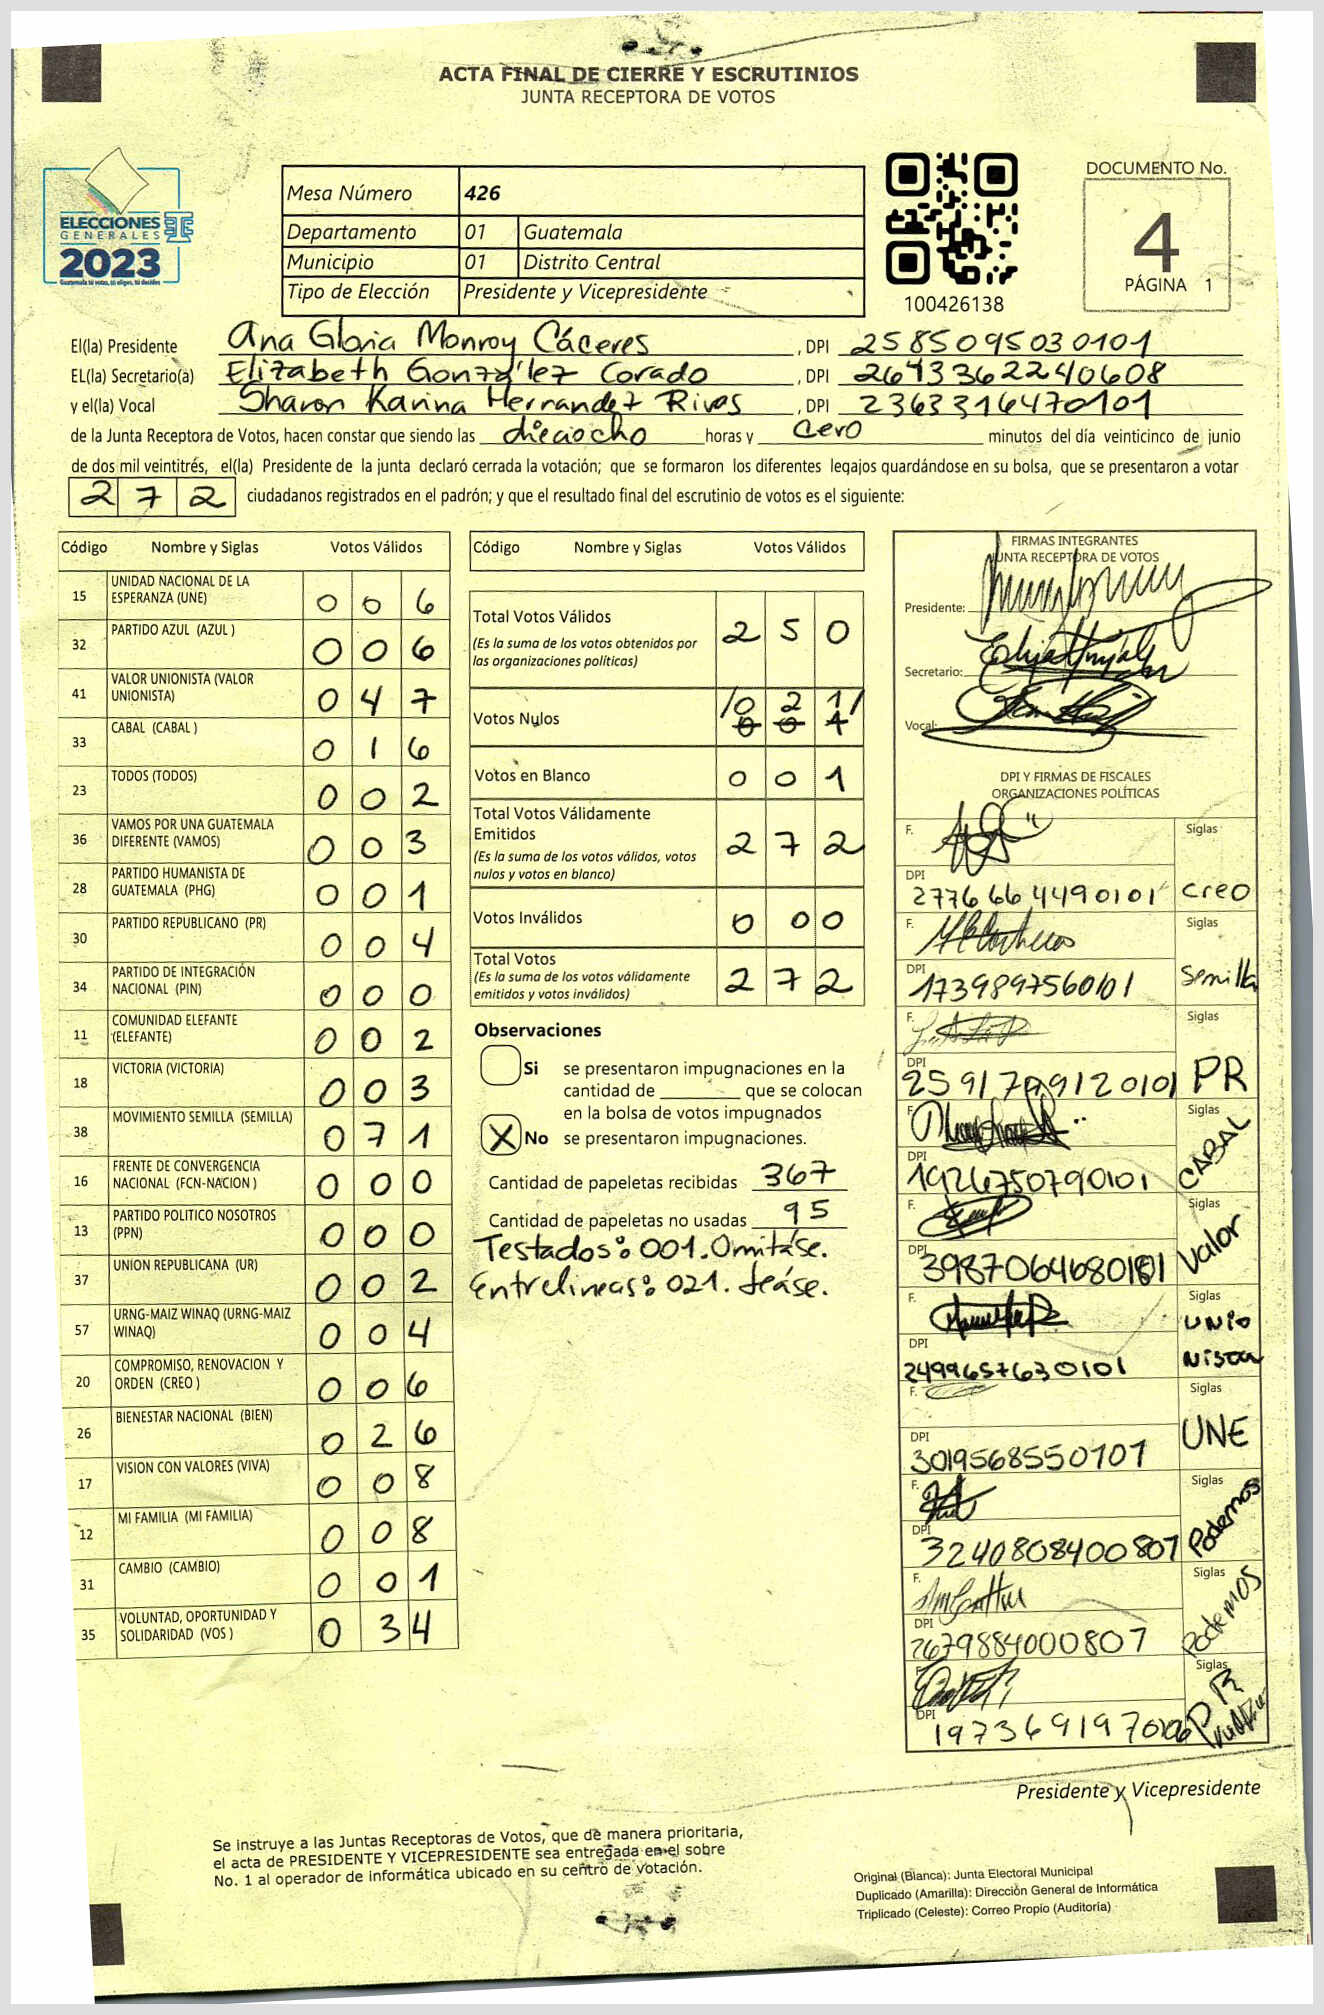 ACTA FINAL DE CIERRE Y ESCRUTINIOS
JUNTA RECEPTORA DE VOTOS
ELECCIONES
GENERALES
2023
Mesa Número 426
Departamento 01 Guatemala
Municipio 01 Distrito Central
Tipo de Elección Presidente y Vicepresidente
100426138
DOCUMENTO No.
4
PÁGINA 1
El(la) Presidente Ana Gloria Monroy Cáceres , DPI 2585095030101
EL(la) Secretario(a) Elizabeth González Corado , DPI 2643362240608
y el(la) Vocal Sharon Karina Hernandez Rivas , DPI 2363316470101
de la Junta Receptora de Votos, hacen constar que siendo las dieciocho horas y cero minutos del día veinticinco de junio
de dos mil veintitrés, el(la) Presidente de la junta declaró cerrada la votación; que se formaron los diferentes legajos guardándose en su bolsa, que se presentaron a votar
272 ciudadanos registrados en el padrón; y que el resultado final del escrutinio de votos es el siguiente:
Código Nombre y Siglas Votos Válidos
15 UNIDAD NACIONAL DE LA ESPERANZA (UNE) 0 0 6
32 PARTIDO AZUL (AZUL ) 0 0 6
41 VALOR UNIONISTA (VALOR UNIONISTA) 0 4 7
33 CABAL (CABAL ) 0 1 6
23 TODOS (TODOS) 0 0 2
36 VAMOS POR UNA GUATEMALA DIFERENTE (VAMOS) 0 0 3
28 PARTIDO HUMANISTA DE GUATEMALA (PHG) 0 0 1
30 PARTIDO REPUBLICANO (PR) 0 0 4
34 PARTIDO DE INTEGRACIÓN NACIONAL (PIN) 0 0 0
11 COMUNIDAD ELEFANTE (ELEFANTE) 0 0 2
18 VICTORIA (VICTORIA) 0 0 3
38 MOVIMIENTO SEMILLA (SEMILLA) 0 7 1
16 FRENTE DE CONVERGENCIA NACIONAL (FCN-NACION ) 0 0 0
13 PARTIDO POLITICO NOSOTROS (PPN) 0 0 0
37 UNION REPUBLICANA (UR) 0 0 2
57 URNG-MAIZ WINAQ (URNG-MAIZ WINAQ) 0 0 4
20 COMPROMISO, RENOVACION Y ORDEN (CREO ) 0 0 6
26 BIENESTAR NACIONAL (BIEN) 0 2 6
17 VISION CON VALORES (VIVA) 0 0 8
12 MI FAMILIA (MI FAMILIA) 0 0 8
31 CAMBIO (CAMBIO) 0 0 1
35 VOLUNTAD, OPORTUNIDAD Y SOLIDARIDAD (VOS ) 0 3 4
Código Nombre y Siglas Votos Válidos
Total Votos Válidos 2 5 0
(Es la suma de los votos obtenidos por
las organizaciones políticas)
Votos Nulos /0 2 1/
Votos en Blanco 0 0 1
Total Votos Válidamente
Emitidos 2 7 2
(Es la suma de los votos válidos, votos
nulos y votos en blanco)
Votos Inválidos 0 0 0
Total Votos 2 7 2
(Es la suma de los votos válidamente
emitidos y votos inválidos)
Observaciones
Si se presentaron impugnaciones en la
cantidad de que se colocan
en la bolsa de votos impugnados
X No se presentaron impugnaciones.
Cantidad de papeletas recibidas 367
Cantidad de papeletas no usadas 95
Testados: 001. Omitáse.
Entrelineas: 021. Léáse.
FIRMAS INTEGRANTES
JUNTA RECEPTORA DE VOTOS
Presidente:
Secretario:
Vocal:
DPI Y FIRMAS DE FISCALES
ORGANIZACIONES POLÍTICAS
F. Siglas
DPI 2776664490101 creo
F. Siglas
DPI 1739897560101 Semilla
F. Siglas
DPI 2591799120101 PR
F. Siglas
DPI 1926750790101 CABAL
F. Siglas
DPI Valor
F. Siglas
DPI 2499657630101 UNIO NISTA
F. Siglas
DPI 3019568550101 UNE
F. Siglas
DPI 3240808400807 Podemos
F. Siglas
DPI 2679884000807 Podemos
F. Siglas
DPI PR
Presidente y Vicepresidente
Se instruye a las Juntas Receptoras de Votos, que de manera prioritaria,
el acta de PRESIDENTE Y VICEPRESIDENTE sea entregada en el sobre
No. 1 al operador de informática ubicado en su centro de votación.
Original (Blanca): Junta Electoral Municipal
Duplicado (Amarilla): Dirección General de Informática
Triplicado (Celeste): Correo Propio (Auditoría)